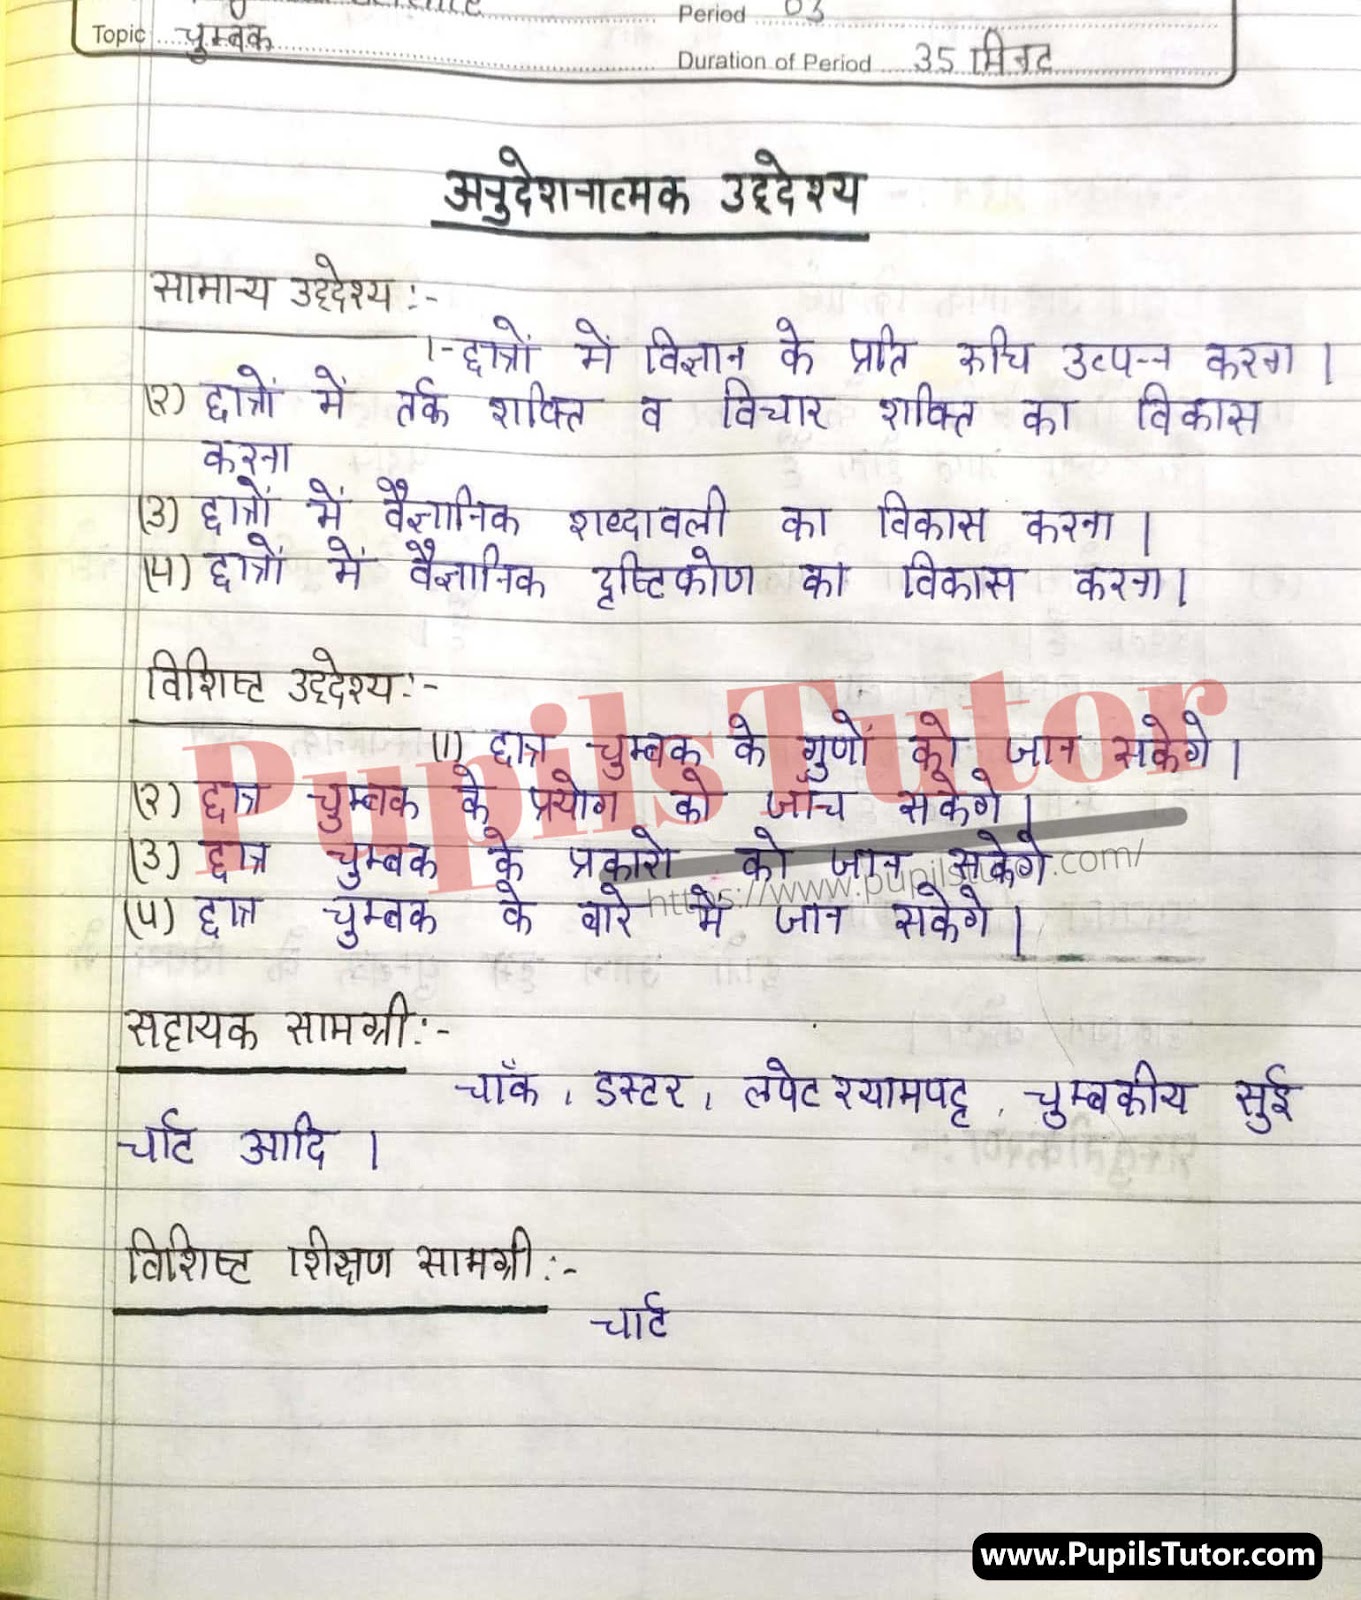 Science Period 03
Topic चुम्बक
Duration of Period 35 मिनट
अनुदेशनात्मक उद्देश्य
सामान्य उद्देश्य :-
1- छात्रों में विज्ञान के प्रति रूचि उत्पन्न करना ।
(२) छात्रों में तर्क शक्ति व विचार शक्ति का विकास
करना
(3) छात्रों में वैज्ञानिक शब्दावली का विकास करना ।
(4) छात्रों में वैज्ञानिक दृष्टिकोण का विकास करना ।
विशिष्ट उद्देश्य :-
(1) छात्र चुम्बक के गुणों को जान सकेगे ।
(२) छात्र चुम्बक के प्रयोग को जाँच सकेगे ।
(3) छात्र चुम्बक के प्रकारो को जान सकेगे
(4) छात्र चुम्बक के बारे में जान सकेगे ।
PupilsTutor
https://www.pupilstutor.com/
सहायक सामग्री :-
चाँक , डस्टर , लपेट श्यामपट्ट , चुम्बकीय सुई
चार्ट आदि ।
विशिष्ट शिक्षण सामग्री :-
चार्ट
www.PupilsTutor.com